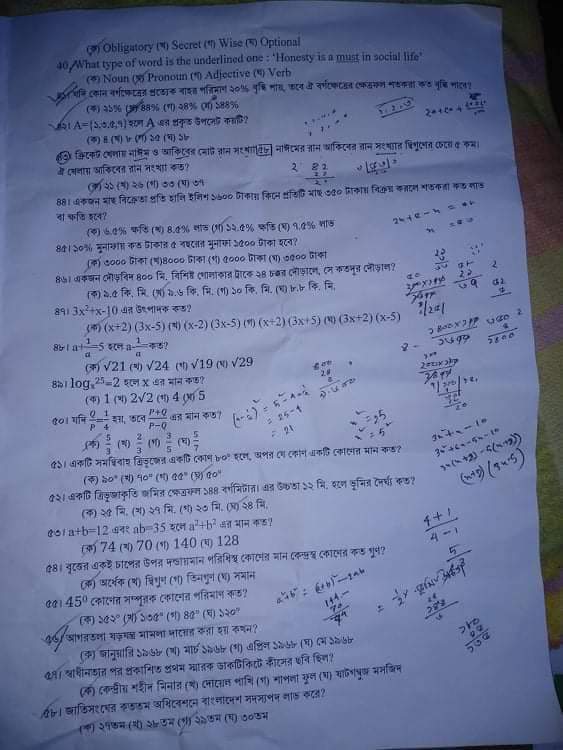 (ক) Obligatory (খ) Secret (গ) Wise (ঘ) Optional
40. What type of word is the underlined one : 'Honesty is a must in social life'
(ক) Noun (খ) Pronoun (গ) Adjective (ঘ) Verb
৪১। যদি কোন বর্গক্ষেত্রের প্রত্যেক বাহুর পরিমাণ ২০% বৃদ্ধি পায়, তবে ঐ বর্গক্ষেত্রের ক্ষেত্রফল শতকরা কত বৃদ্ধি পাবে?
(ক) ২১% (খ) ৪৪% (গ) ২৪% (ঘ) ১৪৪%
৪২। A={১,৩,৫,৭} হলে A এর প্রকৃত উপসেট কয়টি?
(ক) ৪ (খ) ৮ (গ) ১৫ (ঘ) ১৮
৪৩। ক্রিকেট খেলায় নাঈম ও আকিবের মোট রান সংখ্যা ৫৮। নাঈমের রান আকিবের রান সংখ্যার দ্বিগুণের চেয়ে ৫ কম।
ঐ খেলায় আকিবের রান সংখ্যা কত?
(ক) ২১ (খ) ২৬ (গ) ৩৩ (ঘ) ৩৭
৪৪। একজন মাছ বিক্রেতা প্রতি হালি ইলিশ ১৬০০ টাকায় কিনে প্রতিটি মাছ ৩৫০ টাকায় বিক্রয় করলে শতকরা কত লাভ
বা ক্ষতি হবে?
(ক) ৬.৫% ক্ষতি (খ) ৪.৫% লাভ (গ) ১২.৫% ক্ষতি (ঘ) ৭.৫% লাভ
৪৫। ১০% মুনাফায় কত টাকার ৫ বছরের মুনাফা ১৫০০ টাকা হবে?
(ক) ৩০০০ টাকা (খ) ৪০০০ টাকা (গ) ৫০০০ টাকা (ঘ) ৩৫০০ টাকা
৪৬। একজন দৌড়বিদ ৪০০ মি. বিশিষ্ট গোলাকার ট্রাকে ২৪ চক্কর দৌড়ালে, সে কতদূর দৌড়াল?
(ক) ৯.৫ কি. মি. (খ) ৯.৬ কি. মি. (গ) ১০ কি. মি. (ঘ) ৮.৮ কি. মি.
৪৭। 3x²+x-10 এর উৎপাদক কত?
(ক) (x+2) (3x-5) (খ) (x-2) (3x-5) (গ) (x+2) (3x+5) (ঘ) (3x+2) (x-5)
৪৮। a+1/a=5 হলে a-1/a=কত?
(ক) √21 (খ) √24 (গ) √19 (ঘ) √29
৪৯। logₓ25=2 হলে x এর মান কত?
(ক) 1 (খ) 2√2 (গ) 4 (ঘ) 5
৫০। যদি Q/P=1/4 হয়, তবে P+Q/P-Q এর মান কত?
(ক) 5/3 (খ) 2/3 (গ) 3/5 (ঘ) 5/7
৫১। একটি সমদ্বিবাহু ত্রিভুজের একটি কোণ ৮০° হলে, অপর যে কোণ একটি কোণের মান কত?
(ক) ৯০° (খ) ৭০° (গ) ৫৫° (ঘ) ৫০°
৫২। একটি ত্রিভুজাকৃতি জমির ক্ষেত্রফল ১৪৪ বর্গমিটার। এর উচ্চতা ১২ মি. হলে ভূমির দৈর্ঘ্য কত?
(ক) ২৫ মি. (খ) ২৭ মি. (গ) ২৩ মি. (ঘ) ২৪ মি.
৫৩। a+b=12 এবং ab=35 হলে a²+b² এর মান কত?
(ক) 74 (খ) 70 (গ) 140 (ঘ) 128
৫৪। বৃত্তের একই চাপের উপর দন্ডায়মান পরিধিস্থ কোণের মান কেন্দ্রস্থ কোণের কত গুণ?
(ক) অর্ধেক (খ) দ্বিগুণ (গ) তিনগুণ (ঘ) সমান
৫৫। 45⁰ কোণের সম্পূরক কোণের পরিমাণ কত?
(ক) ১৫২° (খ) ১৩৫° (গ) ৪৫° (ঘ) ১২০°
৫৬। আগরতলা ষড়যন্ত্র মামলা দায়ের করা হয় কখন?
(ক) জানুয়ারি ১৯৬৮ (খ) মার্চ ১৯৬৮ (গ) এপ্রিল ১৯৬৮ (ঘ) মে ১৯৬৮
৫৭। স্বাধীনতার পর প্রকাশিত প্রথম স্মারক ডাকটিকিটে কীসের ছবি ছিল?
(ক) কেন্দ্রীয় শহীদ মিনার (খ) দোয়েল পাখি (গ) শাপলা ফুল (ঘ) ষাটগম্বুজ মসজিদ
৫৮। জাতিসংঘের কততম অধিবেশনে বাংলাদেশ সদস্যপদ লাভ করে?
(ক) ২৭তম (খ) ২৮তম (গ) ২৯তম (ঘ) ৩০তম